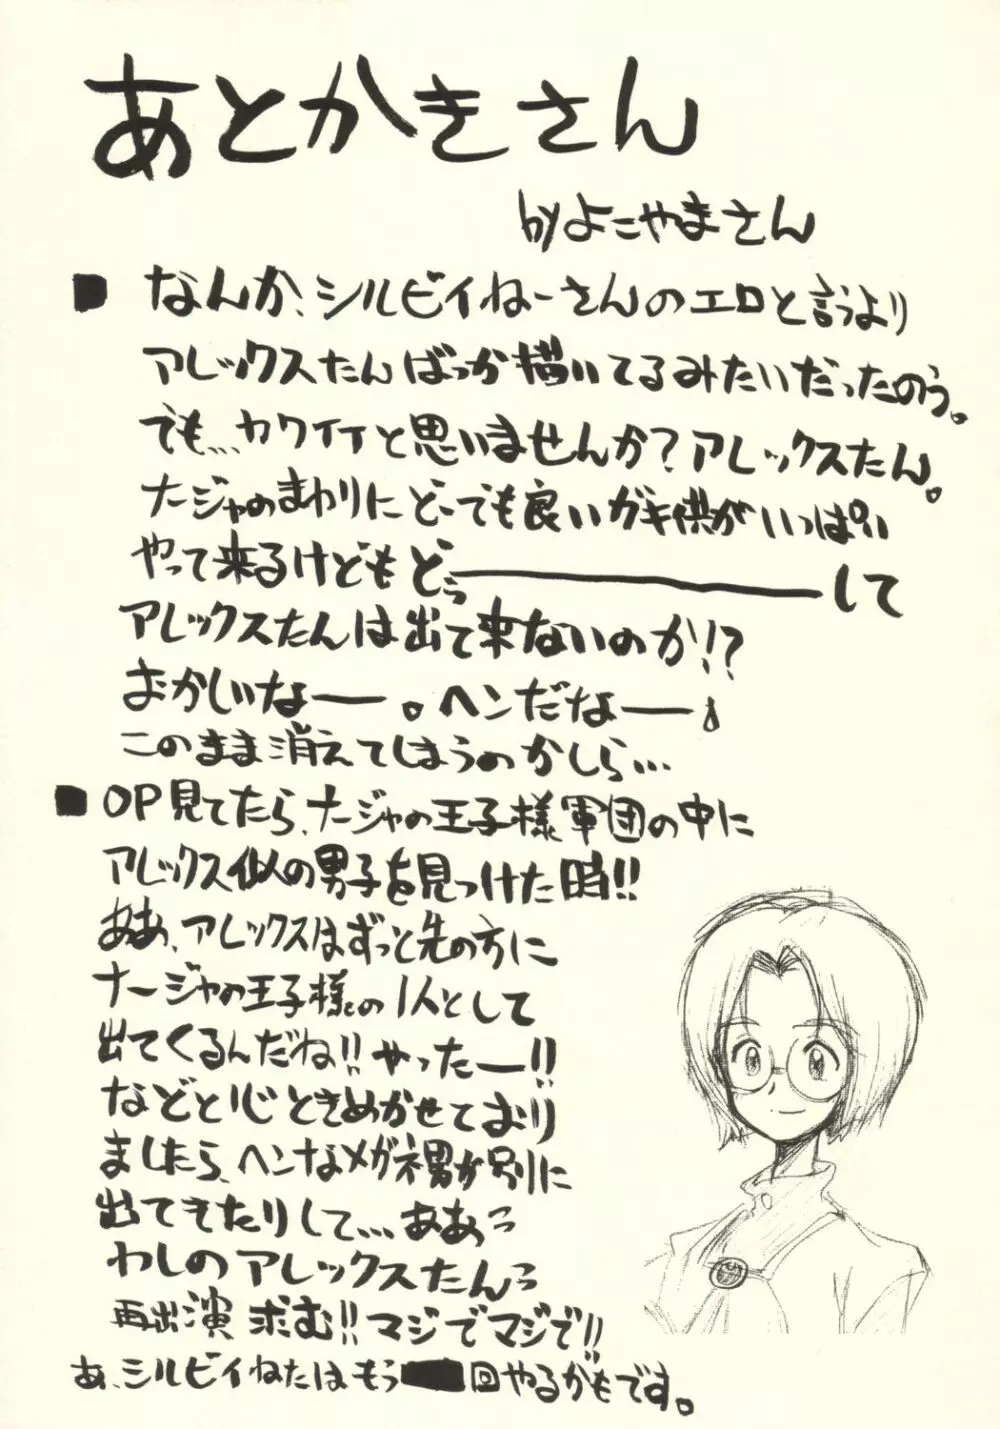 あとかきさん
byよこやまさん
■ なんか、シルビィねーさんのエロと言うより
アレックスたんばっか描いてるみたいだったのう。
でも…カワイイと思いませんか？アレックスたん。
ナージャのまわりにどーでも良いガキ供がいっぱい
やって来るけどもどぅーーーーして
アレックスたんは出て来ないのか!?
おかしいなー。ヘンだなー!
このまま消えてしまうのかしら…
■ OP見てたら、ナージャの王子様軍団の中に
アレックス似の男子を見つけた時!!
ああ、アレックスはずっと先の方に
ナージャの王子様の1人として
出てくるんだね!!やったー!!
などと心ときめかせており
ましたら、ヘンなメガネ男が別に
出てきたりして…ああっ
わしのアレックスたんっ
再出演求む!!マジでマジで!!
あ、シルビィねたはもう■回やるかもです。